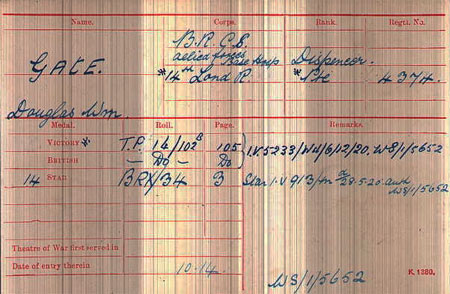 Name. Corps. Rank. Regtl. No.
B.R.C.S.
Allied forces
Base Hosp. Dispencer.
GATE. *14th Lond R. *Pte 4374.
Douglas Wm.
Medal. Roll. Page. Remarks.
VICTORY * T.P. 14/102B 105 I.V.5233/Wd/6/12/20. WS/1/5652
BRITISH — Do — Do
14 STAR BRX/34 3 Star I.V 913/ 28.5.20. auth
WS/1/5652
Theatre of War first served in
Date of entry therein 10.14.
K. 1380.
WS/1/5652